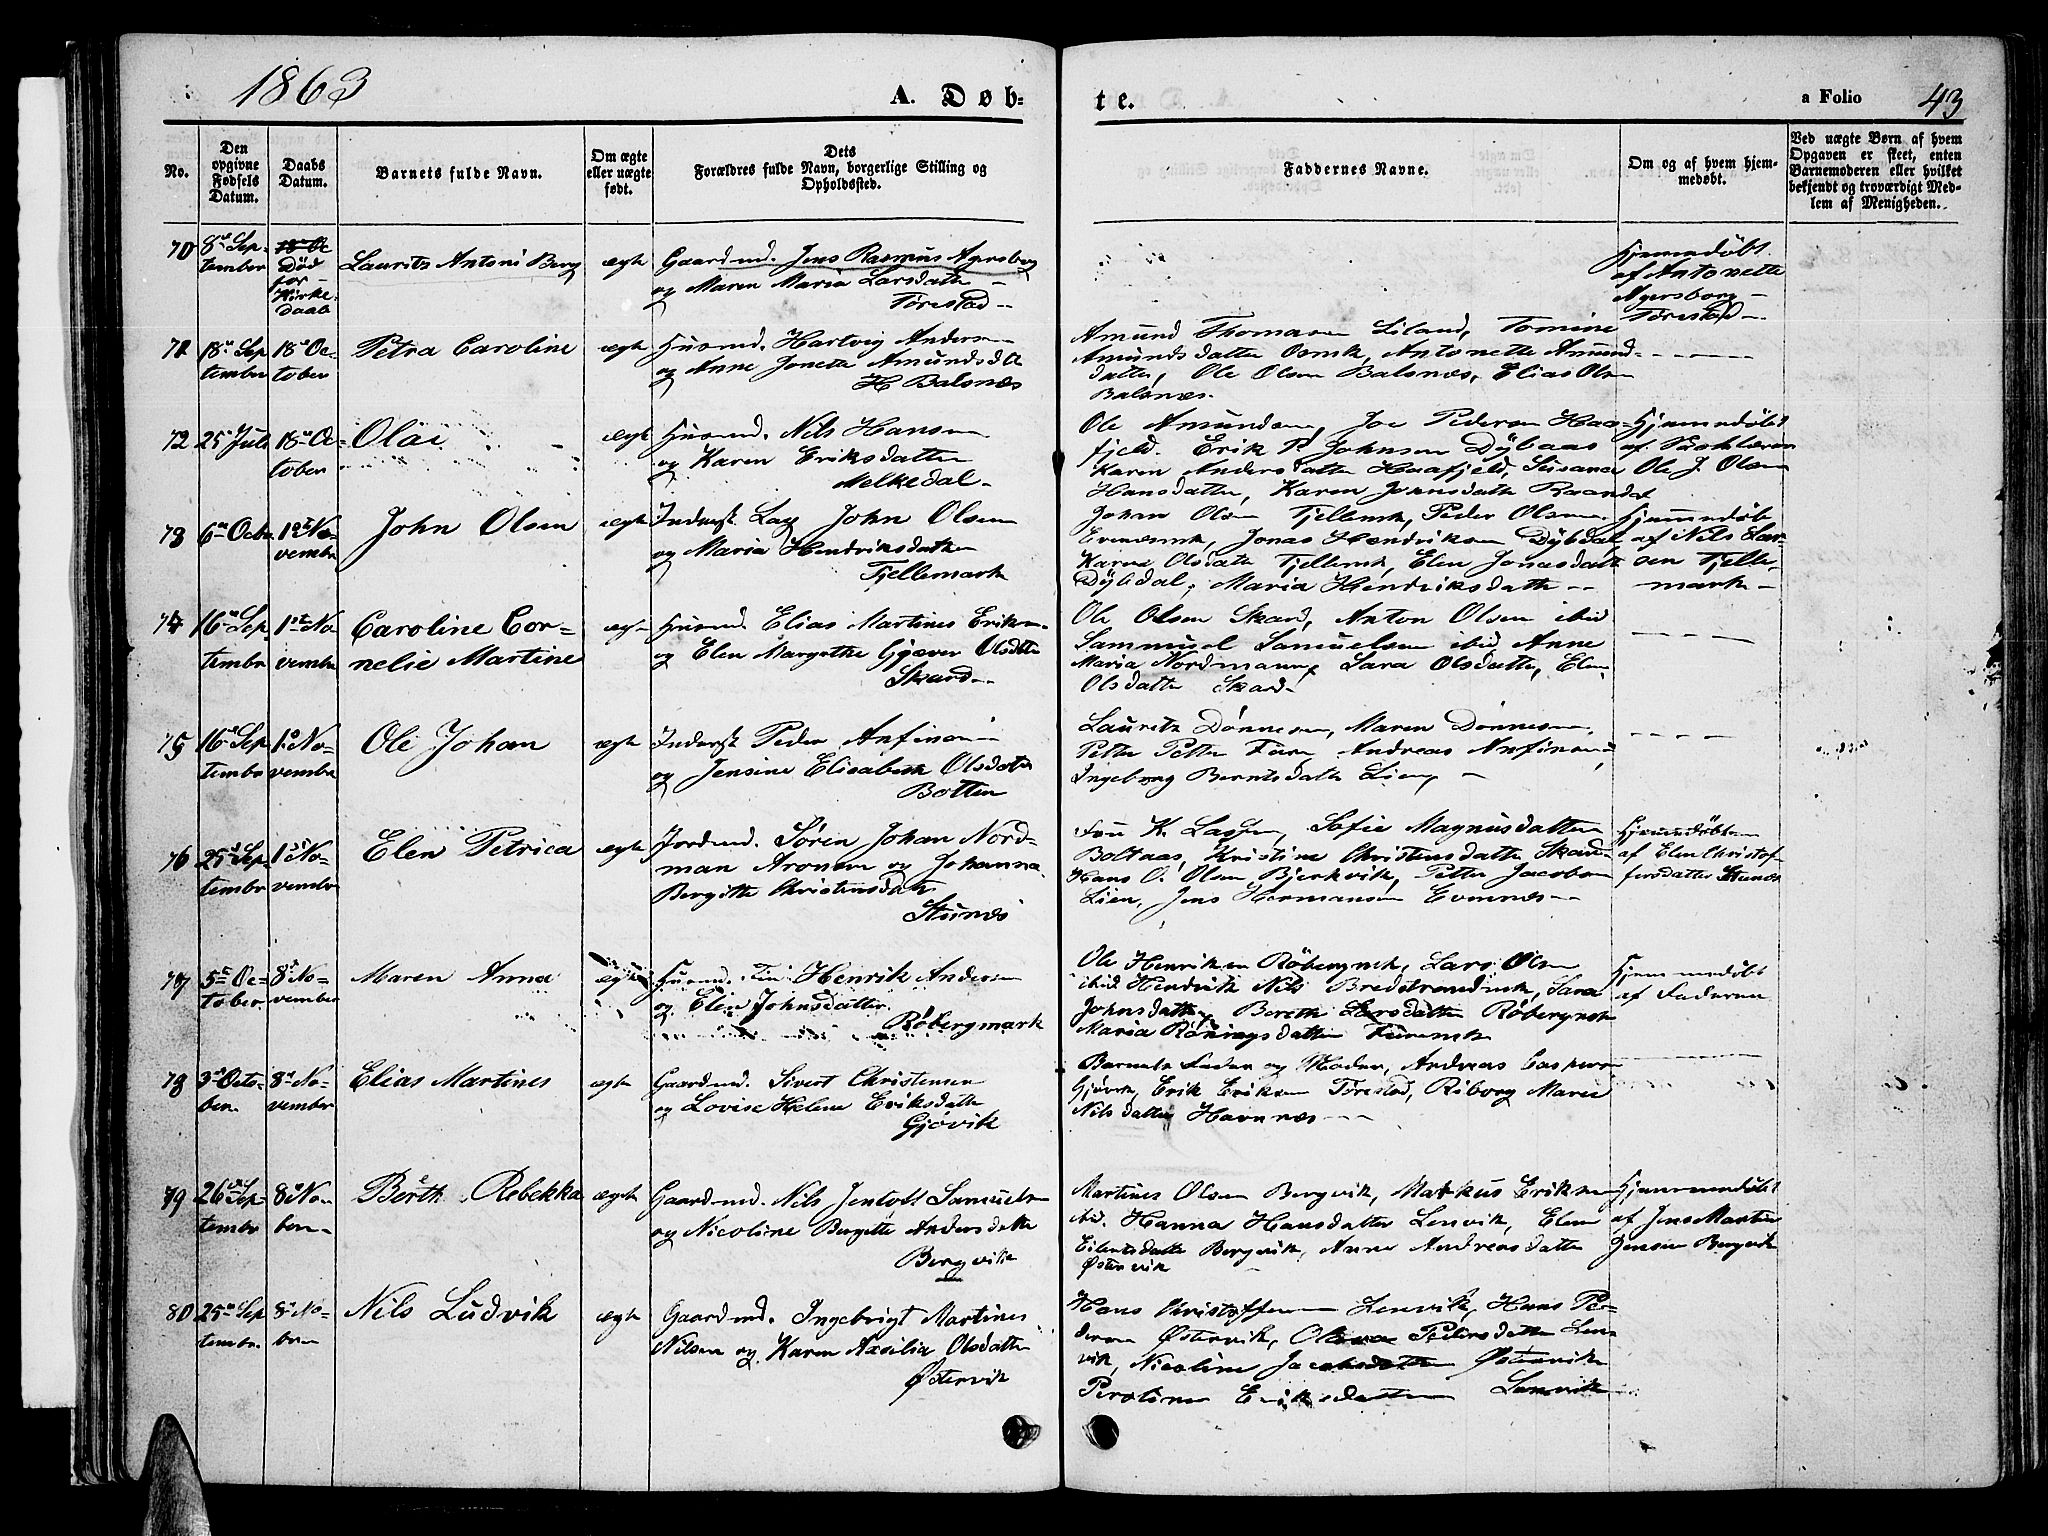 1863
A. Døb-
te.
a Folio 43
No.
Den opgivne Fødsels Datum.
Daabs Datum.
Barnets fulde Navn.
Om ægte eller uægte født.
Dets Forældres fulde Navn, borgerlige Stilling og Opholdssted.
Faddernes Navne.
Om og af hvem hjem-
medøbt.
Ved uægte Børn af hvem
Opgaven er skeet, enten
Barnemoderen eller hvilket
bekjendt og troværdigt Med-
lem af Menigheden.
70 8de Sep- Laurits Antoni Berg ægte Gaardmd. Jens Rasmus Agersborg
tember Død før Kirke daab og Maren Maria Larsdatter
Tørestad
Hjemmedøbt
af Antonette
Agersborg
Tørestad
71 18de Sep 18de Oc- Petra Caroline ægte Husmd. Hartvig Andersen
tember tober og Anne Jonette Amundsdtr
H Balsnæs
Amund Thomasen Liland, Tomine
Amundsdatter Osmk, Antonette Amund-
datter, Ole Olsen Balsnæs, Elias Olsen
Balsnæs.
72 25 Juli 18de Oc- Olai ægte Husmd. Nils Hansen
tober og Karen Eriksdatter
Melkedal
Ole Amundsen, Joe Pedersen Haa-
fjeld. Erik P. Johnsen Dybaas
Karen Andersdatter Haafjeld, Susana
Hansdatter, Karen Johnsdatter Raandal
Hjemmedøbt
af Skolelæreren
Ole J. Olsen
73 6te Octbr. 1ste No- John Olsen ægte Inderst. Lap John Olsen
vembr og Maria Hendriksdatter
Tjellemark
Johan Olsen Tjellemk, Peder Olsen
Evenesmk, Jonas Hendriksen Dybdal
Karen Olsdatter Tjellemk, Elen Jonasdatter
Dybdal, Maria Hendriksdatter
Hjemmedøbt
af Nils Lar-
sen Tjelle-
mark
74 16de Sep 1ste No- Caroline Cor- ægte Husmd. Elias Martines Eriksen
tembr vembr nelie Martine og Elen Margrethe Gjæver Olsdtr
Skard
Ole Olsen Skard, Anton Olsen ibid
Sammuel Samuelsen ibid Anne
Maria Nordmann, Sara Olsdatter, Elen
Olsdatter Skard
75 16de Sep 1ste No- Ole Johan ægte Inderst Peder Anfinsen
tembr vembr og Jensine Elisabeth Olsdatter
Botten
Lauritz Dønnesen, Maren Dønnesen,
Petter Petter, Andreas Anfinsen,
Ingeborg Berntsdatter Lien
76 25de Sep 1ste No- Elen Petrica ægte Jordmd. Søren Johan Nord-
tembr vembr man Aronsen og Johanna
Bergitte Christensdatr
Stunæs
Fru K. Lassen, Sofie Magnusdatter
Boltaas, Kristine Christensdatter Skard
Hans O. Olsen Bjerkvik, Petter Jacobsen
Lien, Jens Hermansen Evennæs
Hjemmedøbt
af Elen Christof-
fersdatter Stunæs
77 5te Oc- 8de No- Maren Anna ægte Husmd. Fin Henrik Andersen
tober vember og Elen Johnsdatter
Røbergmark
Ole Henriksen Røbergmk, Lars Olsen
ibid Hendrik Nils Bredstrandmk, Sara
Johnsdatter, Bereth Larsdatter Røbergmk
Maria
Hjemmedøbt
af Faderen
78 3die Octo- 8de No- Elias Martines ægte Gaardmd. Sivert Christensen
ber vember og Lovise Helene Eriksdatter
Gjøvik
Barnets Fader og Moder, Andreas Caspersen
Gjøvik, Erik Eriksen Tørestad, Riborg Marie
Nilsdatter Havnnæs
79 26de Sep- 8de No- Berith Rebekka ægte Gaardmd. Nils Jentoft Samuelsen
tembr ber og Nicoline Bergitte Andersdatter
Bergvik
Martines Olsen Bergvik, Markus Eriksen
ibd. Hanna Hansdatter Lenvik, Elen
Eilertsdatter Bergvik, Anne Andreasdatter
Østervik
Hjemmedøbt
af Jens Martin
Jensen Bergvik
80 25de Sep 8de No- Nils Ludvik ægte Gaardmd. Ingebrigt Martines
tembr. ber Nilsen og Karen Axsilia Olsdatter
Østervik
Hans Christoffersen Lenvik, Hans Pe-
dersen Østervik, Olava Pedersdatter Len-
vik, Nicoline Jacobsdatter Østervik
Peroline Eriksdatter Lenvik